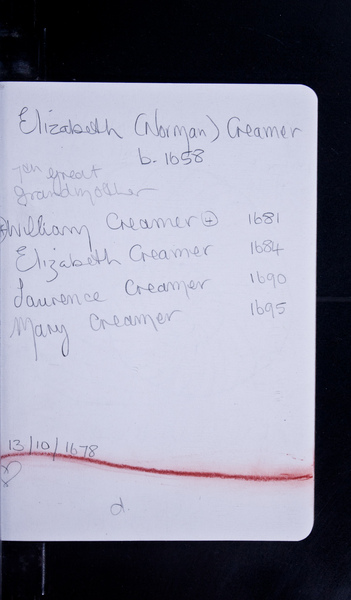 Elizabeth (Norman) Creamer
b. 1658
7th great
grandmother
William Creamer 1681
Elizabeth Creamer 1684
Laurence Creamer 1690
Mary Creamer 1695
13/10/1678
d.